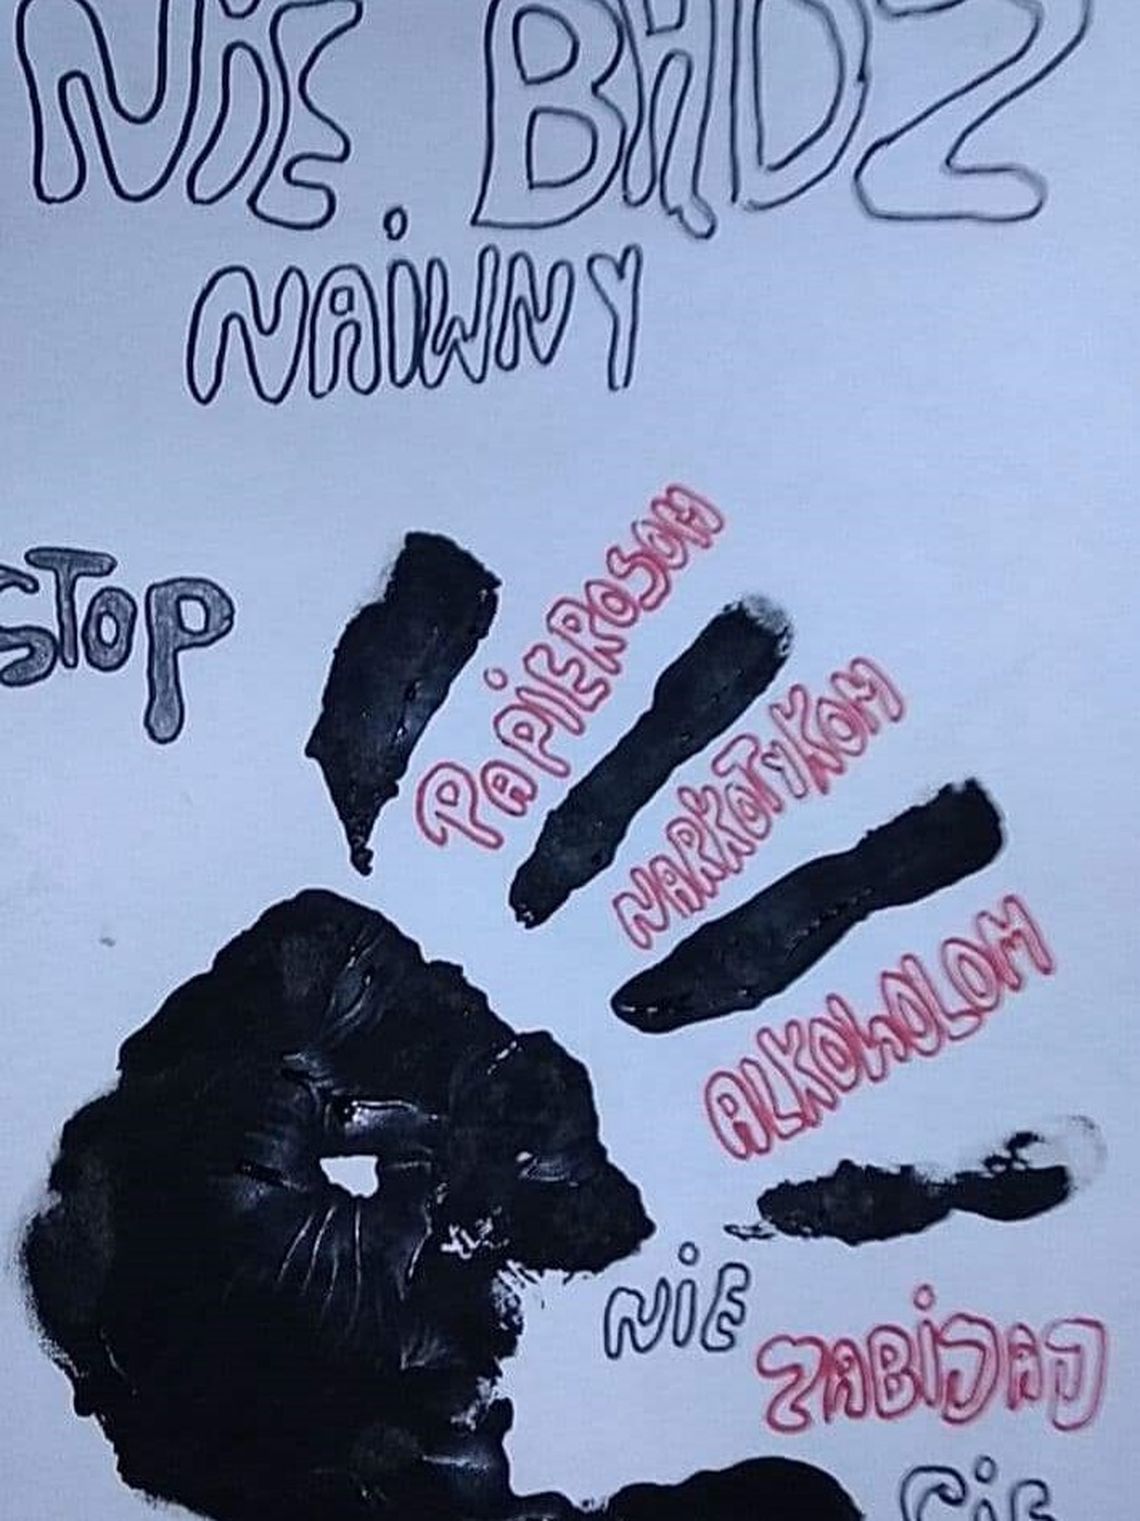 NIE BĄDZ
NAIWNY
STOP
PAPIEROSOM
NARKOTYKOM
ALKOHOLOM
NIE
ZABIJAJ
CIE